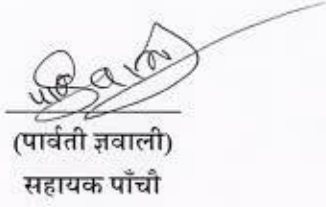 (पार्वती ज्ञवाली)
सहायक पाँचौ